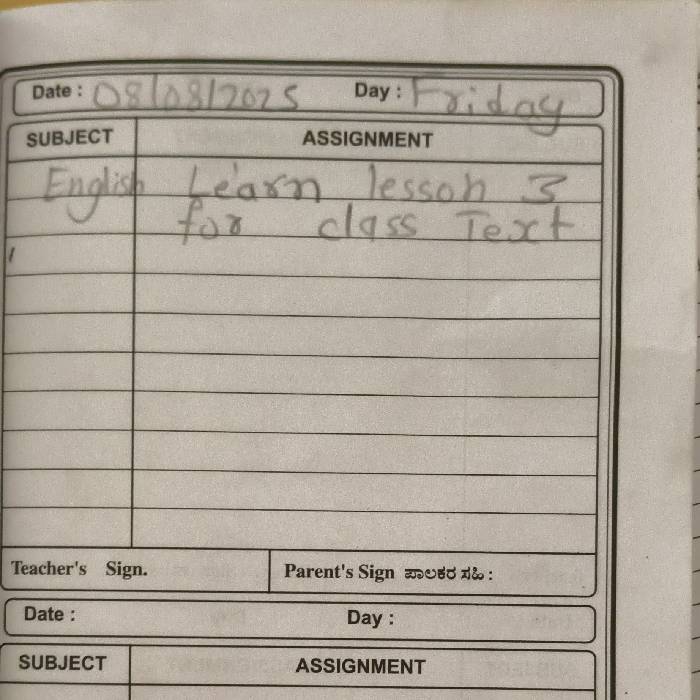 Date : 08/08/2025 Day : Friday
SUBJECT ASSIGNMENT
English Learn lesson 3
for class Text
Teacher's Sign. Parent's Sign ಪಾಲಕರ ಸಹಿ :
Date : Day :
SUBJECT ASSIGNMENT